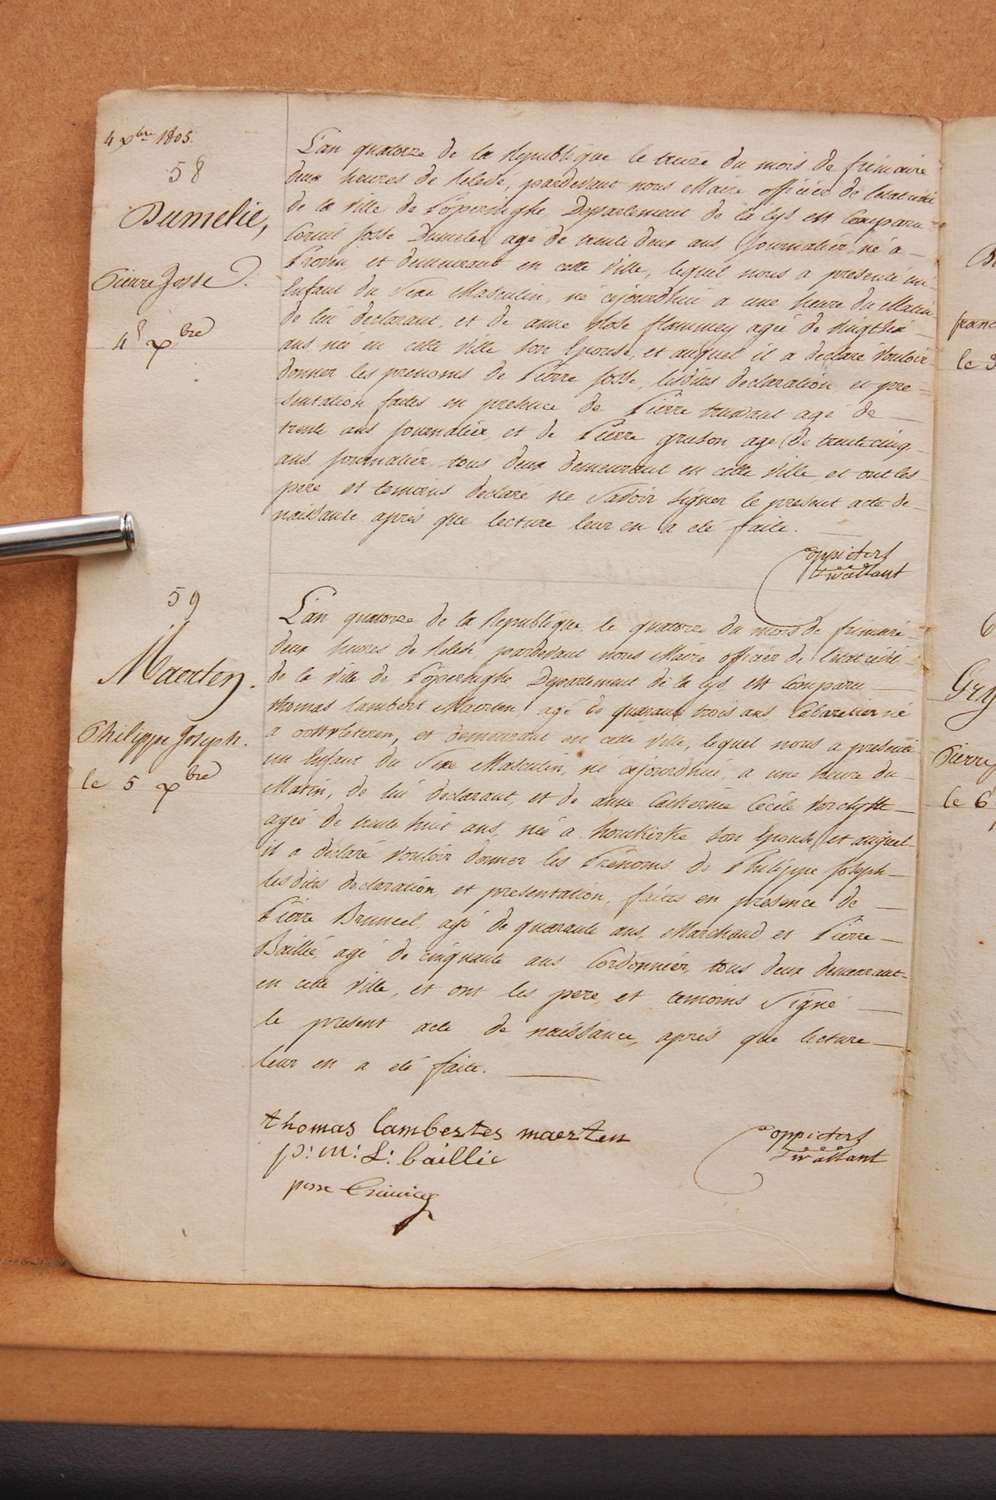 4 Xbre 1805
58
Dumelie,
Pierre Josse
4e Xbre
L'an quatorze de la Republique le treize du mois de frimaire
deux heures de relevée, pardevant nous Maire officier de l'etat civil
de la Ville de Poperinghe, Departement de la Lys est comparu
Josse Dumelie, agé de trente deux ans, Journalier, né a
et demeurant en cette Ville, lequel nous a presenté un
Enfant du Sexe Masculin, né cejourdhui a une heure du Matin
de lui declarant, et de anne Rose flammey agée de vingt
ans née en cette Ville Son Epouse, et auquel il a declaré vouloir
donner les prenoms de Pierre Josse, lesdites declaration et pre-
sentation faites en presence de Pierre agé de
trente ans Journalier et de Pierre gruson agé de trente cinq
ans journalier tous deux demeurant en cette Ville, et ont les
pere et temoins declaré ne Savoir Signer le present acte de
naissance après que lecture leur en a eté faite.
59
Maerten.
Philippe Joseph.
le 5 Xbre
L'an quatorze de la Republique le quatorze du mois de frimaire
deux heures de relevée pardevant Nous Maire officier de l'etat civil
de la Ville de Poperinghe Departement de la Lys est comparu
thomas lambert Maerten, agé de quarante trois ans Cabaretier né
a et demeurant en cette Ville, lequel nous a presenté
un Enfant du Sexe Masculin, né cejourdhui, a une heure du
Matin, de lui declarant, et de anne Catherine Cecile
agée de trente huit ans, née a Son Epouse, et auquel
il a declaré vouloir donner les Prenoms de Philippe Joseph
lesdites declaration, et presentation, faites en presence de
Pierre Bruneel, agé de quarante ans, Marchand et Pierre
Baillie, agé de cinquante ans Cordonnier, tous deux demeurant
en cette Ville, et ont les pere, et temoins Signé
le present acte de naissance, après que lecture
leur en a eté faite.
thomas lambertes maerten
p: m: L: baillie